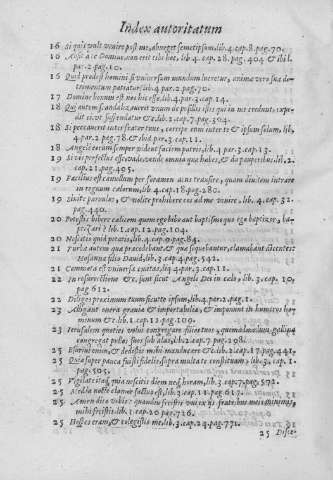 Index autoritatum
16 Si quis vult venire post me, abneget semetipsum, lib.4.cap.8.pag.70.
16 Absit a te Domine, non erit tibi hoc, lib.4.cap.28.pag.404 & ibil.
par.2.pag.10.
16 Quid prodest homini si vniversum mundum lucretur, anima vero sua detrimentum patiatur, lib.4.par.2.pag.70.
17 Domine bonum est nos hic esse, lib.4.par.2.cap.14.
18 Qui autem scandalizaverit vnum de pusillis istis qui in me credunt, expedit ei vt suspendatur & lib.2.cap.7.pag.304.
18 Si peccaverit in te frater tuus, corripe eum inter te & ipsum solum, lib.
4.par.2.pag.78.& ibid par.3.cap.11.
18 Angeli eorum semper vident faciem patris, lib.4.par.3.cap.13.
19 Si vis perfectus esse, vade, vende omnia quæ habes, & da pauperibus, lib.2.
cap.21.pag.405.
19 Facilius est camellum per foramen acus transire, quam divitem intrare
in regnum cælorum, lib.4.cap.18.pag.280.
19 Sinite parvulos, & nolite prohibere eos ad me venire, lib.4.cap.32.
pag.440.
20 Potestis bibere calicem quem ego bibo aut baptismo quo ego baptizor, baptizari? lib.1.cap.12.pag.104.
20 Nescitis quid petatis, lib.4.cap.9.pag.84.
21 Turbæ autem quæ præcedebant & quæ sequebantur, clamabant dicentes:
Hosanna filio David, lib.3.cap.4.pag.542.
21 Commota est vniversa civitas, lib.4.par.3.cap.11.
22 In resurrectione &c. sunt sicut Angeli Dei in celo, lib.3.cap.10,
pag.612.
22 Diliges proximum tuum sicut te ipsum, lib.4.par.2.pag.1.
23 Alligant onera gravia & importabilia, & imponunt in humeros hominum & lib.1.cap.13.pag.109.
23 Ierusalem quoties volui congregare filios tuos, quemadmodum gallina
congregat pullos suos sub alas, lib.2.cap.7.pag.298.
25 Esurivi enim, & dedistis mihi manducare & lib.3.cap.17.pag.441.
25 Quia super pauca fuisti fidelis, supra multa te constituam, lib.3.cap.1.
pag.505.
25 Vigilate itaq; quia nescitis diem neq; horam, lib.3.cap.7.pag.572.
25 Media nocte clamor factus est, lib.2.cap.11.pag.617.
25 Amen dico vobis: quandiu fecistis vni ex iis fratribus meis minimis,
mihi fecistis, lib.1.cap.20.pag.726.
25 Hospes eram, & collegistis me, lib.3.cap.24.pag.771.
25 Disce-